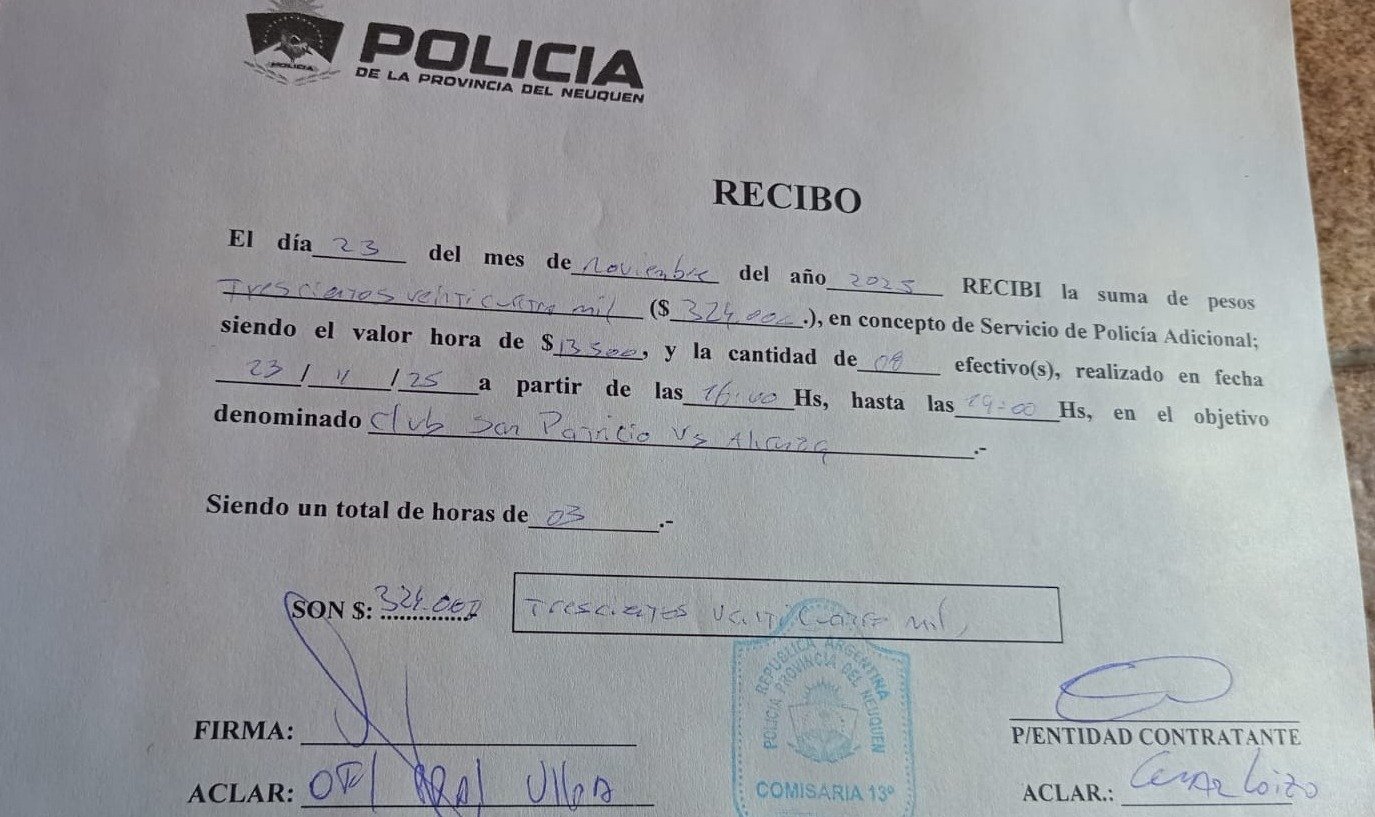 POLICIA
DE LA PROVINCIA DEL NEUQUEN
POLICIA
RECIBO
El día 23 del mes de noviembre del año 2025 RECIBI la suma de pesos
Trescientos veinticuatro mil ($ 324.000.), en concepto de Servicio de Policía Adicional;
siendo el valor hora de $ 13.500, y la cantidad de 08 efectivo(s), realizado en fecha
23 / 11 / 25 a partir de las 16:00 Hs, hasta las 19:00 Hs, en el objetivo
denominado Club San Patricio Vs Alianza.-
Siendo un total de horas de 03.-
SON $: 324.000 Trescientos veinticuatro mil
REPUBLICA ARGENTINA
POLICIA PROVINCIA DEL NEUQUEN
COMISARIA 13º
FIRMA:
P/ENTIDAD CONTRATANTE
ACLAR:
ACLAR.: Cesar